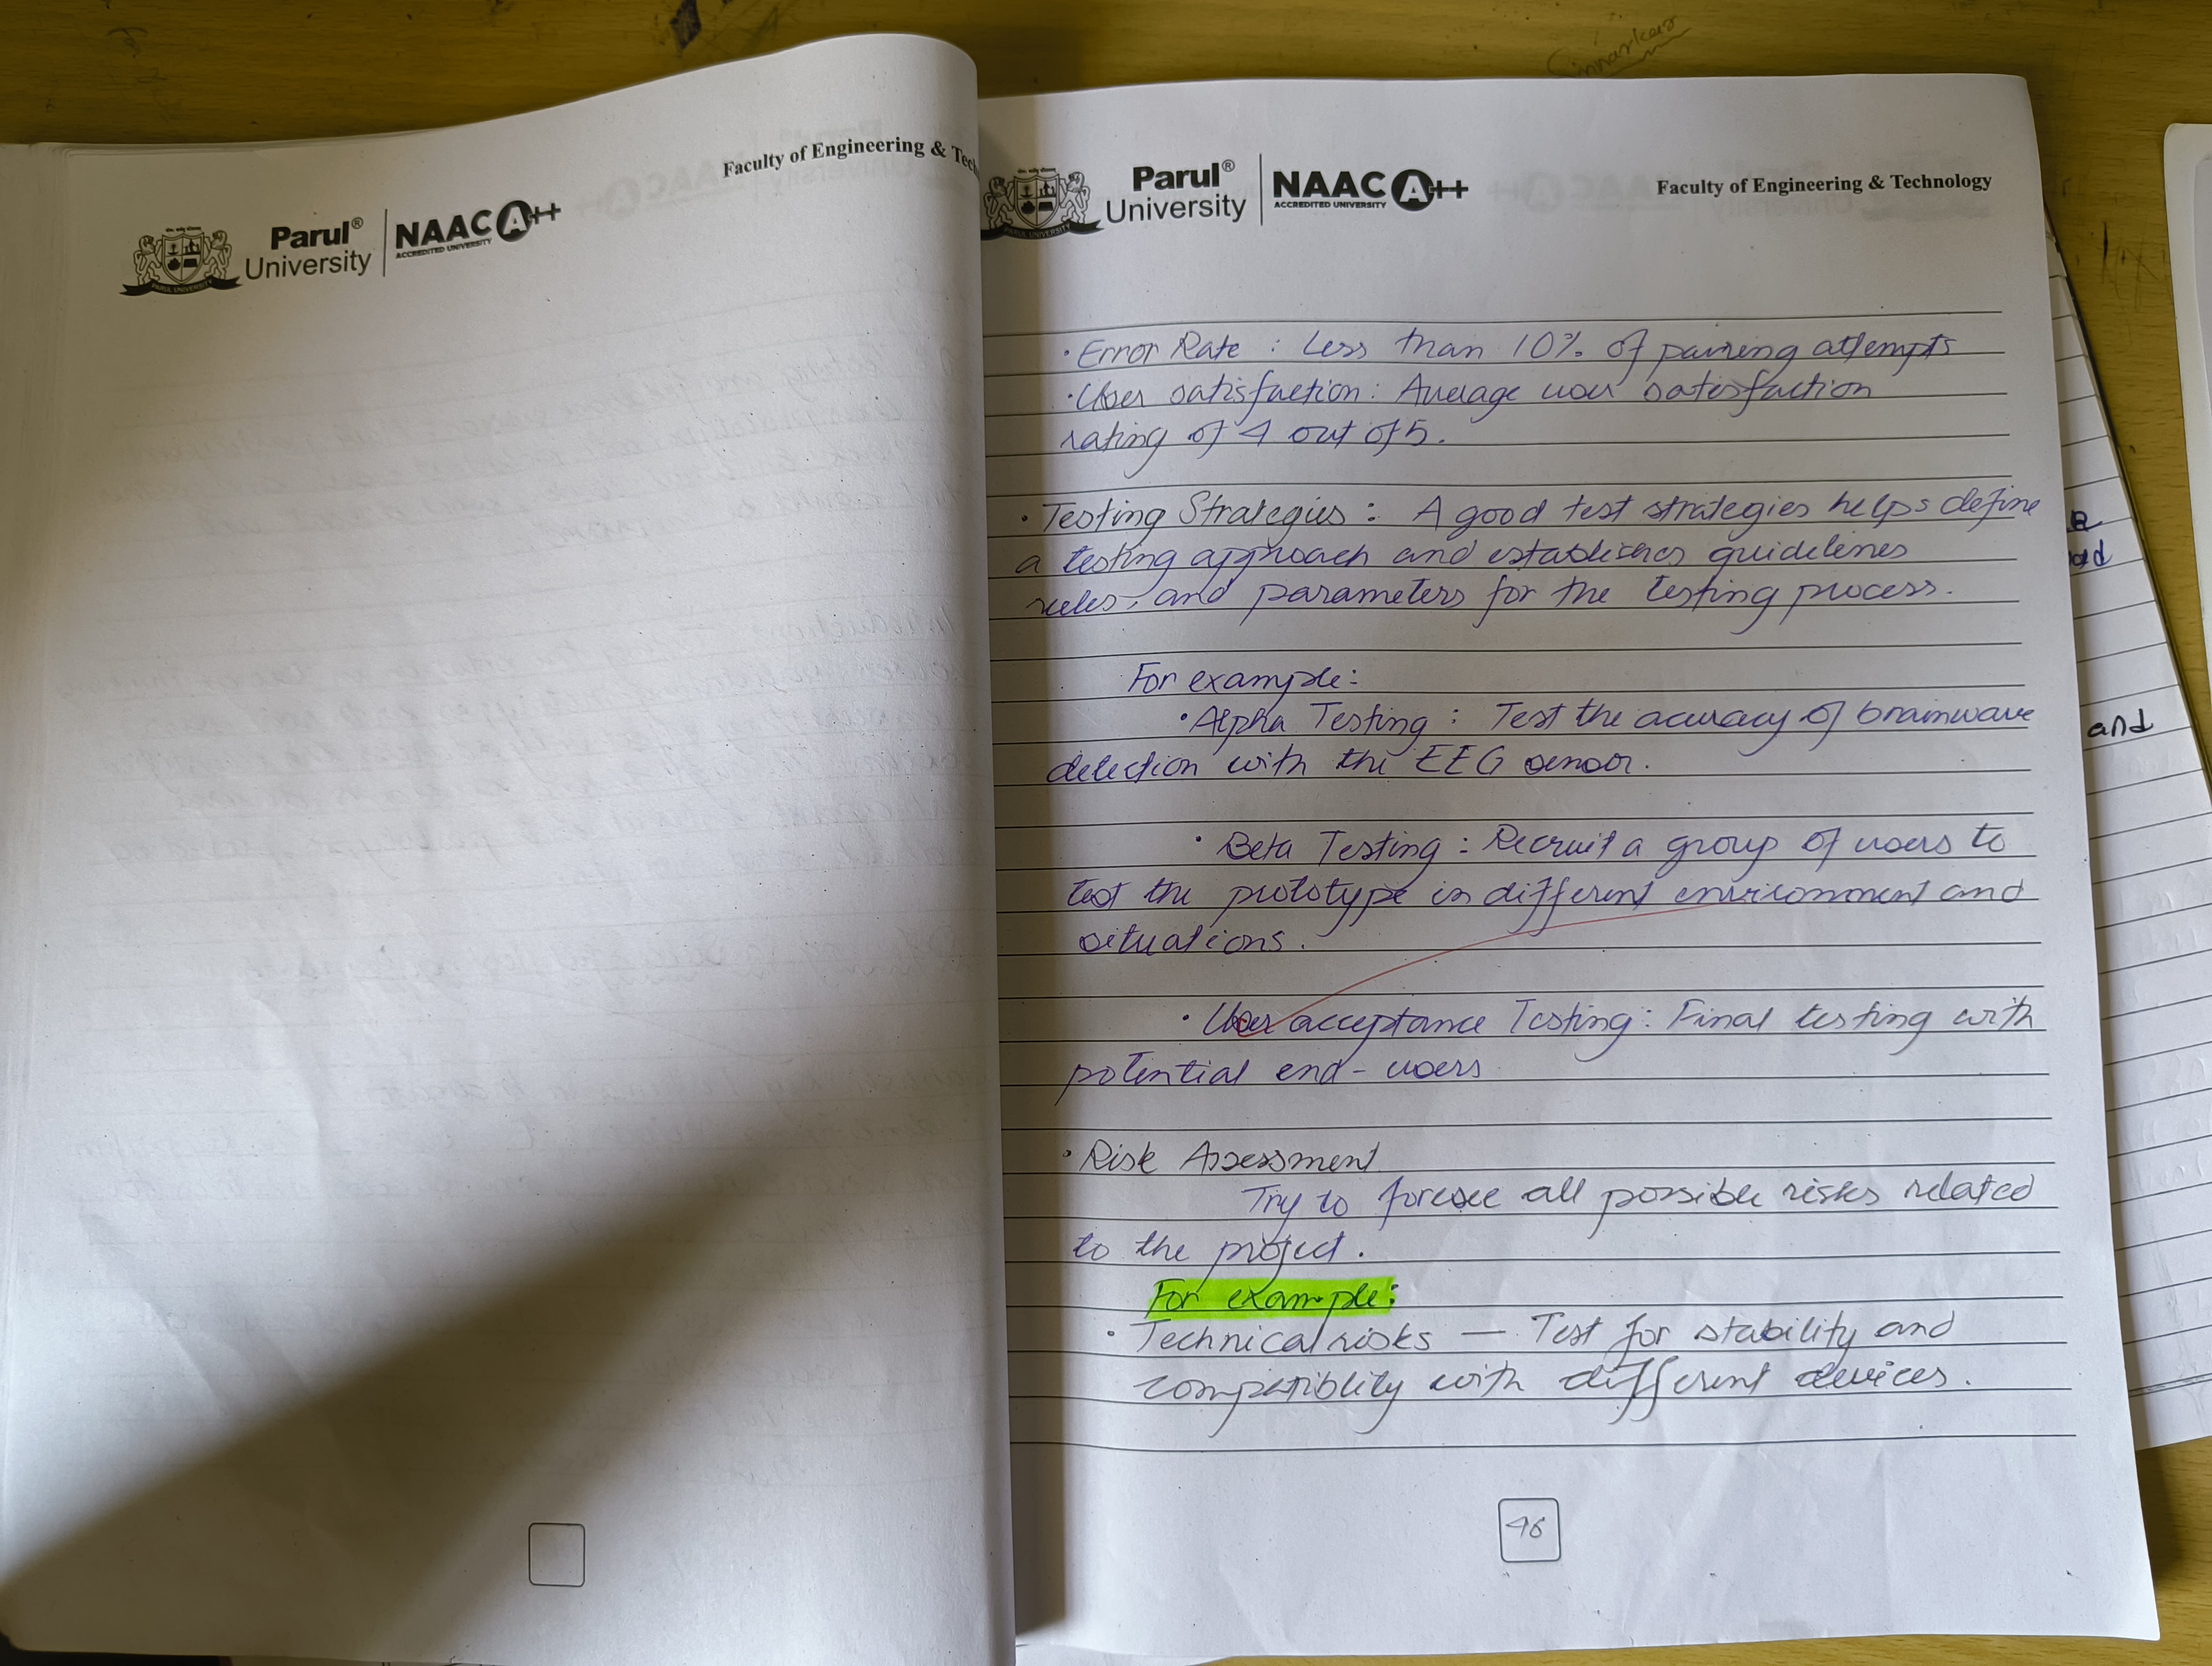 Faculty of Engineering & Tech
Parul®
University
NAAC A++
ACCREDITED UNIVERSITY
PARUL UNIVERSITY
Parul®
University
NAAC A++
ACCREDITED UNIVERSITY
PARUL UNIVERSITY
Faculty of Engineering & Technology
Sinnarkar
· Error Rate : Less than 10% of pairing attempts
· User satisfaction : Average user satisfaction
rating of 4 out of 5.
· Testing Strategies : A good test strategies helps define
a testing approach and establishes guidelines
rules, and parameters for the testing process.
For example:
· Alpha Testing : Test the accuracy of brainwave
detection with the EEG sensor.
· Beta Testing : Recruit a group of users to
test the prototype in different environment and
situations.
· User acceptance Testing : Final testing with
potential end-users
· Risk Assessment
Try to foresee all possible risks related
to the project.
For example:
· Technical risks — Test for stability and
compatiblity with different devices.
46
and